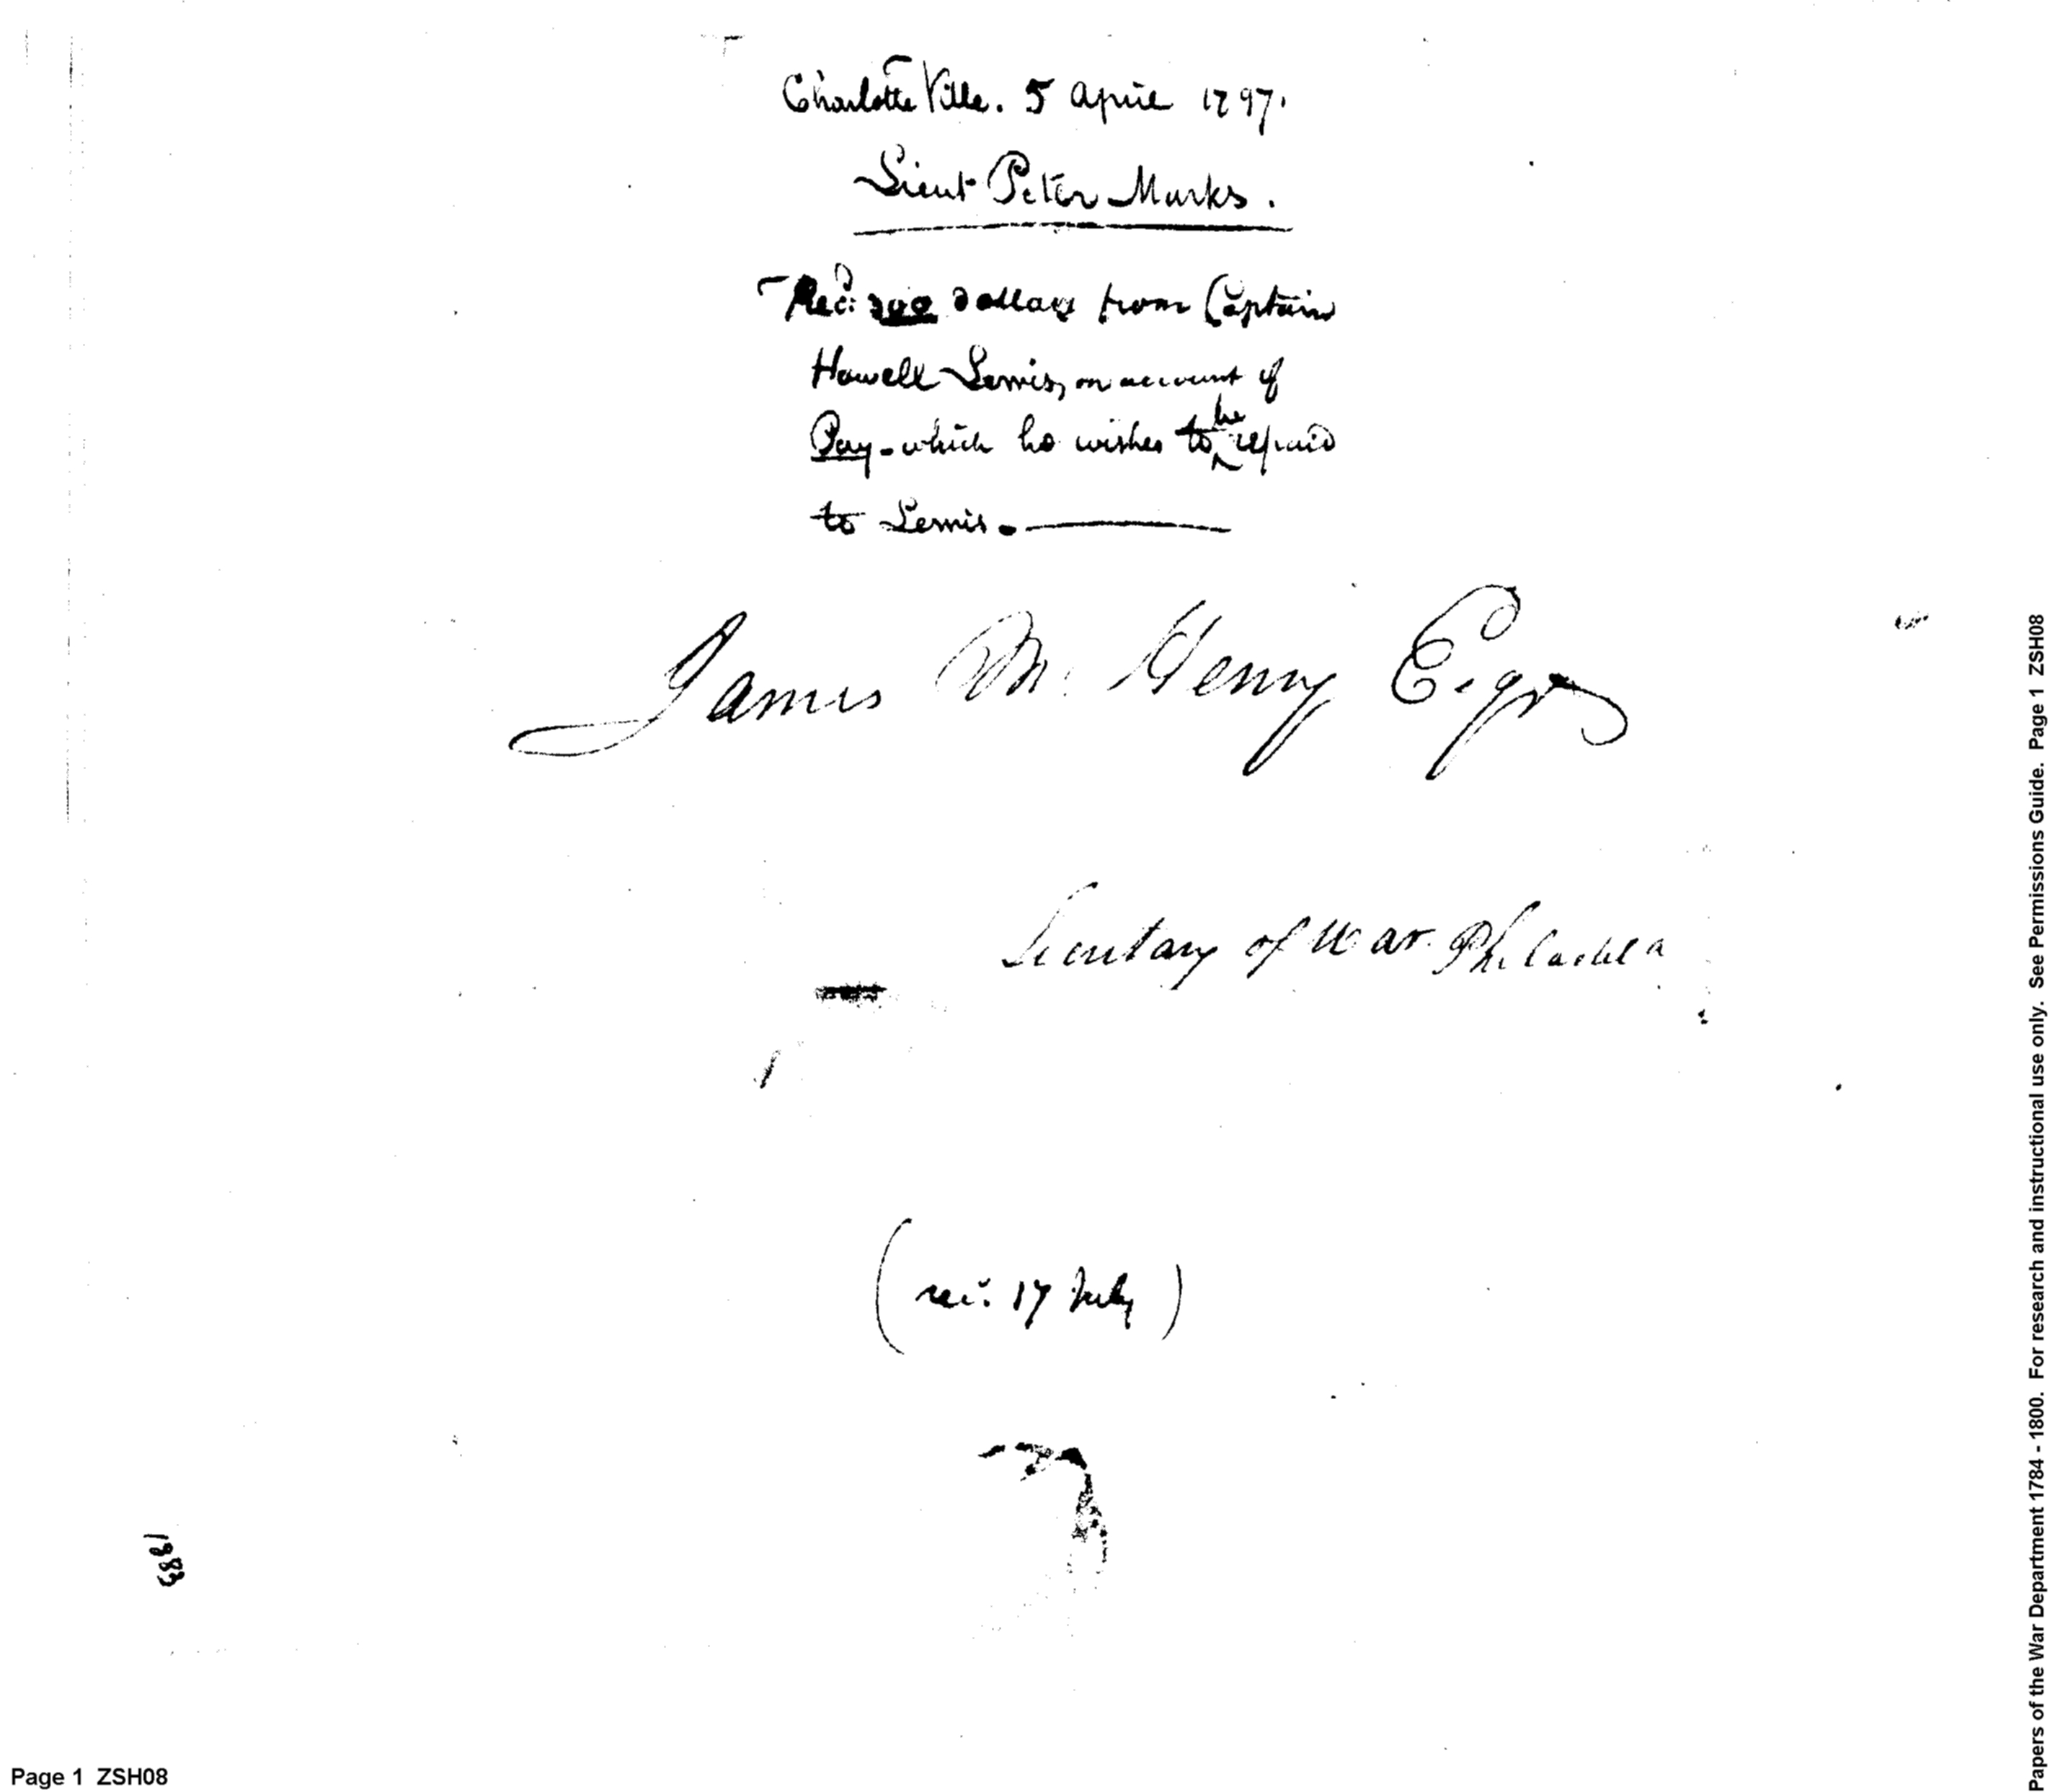 Charlotte Ville. 5 April 1797.
Lieut Peter Marks.
Recd: 200 dollars from Captain
Howell Lewis, on account of
Pay - which he wishes to be repaid
to Lewis. ———
James Mc. Henry Esqr
Secretary of War Philadela
(rec. 17 July)
Page 1 ZSH08
Papers of the War Department 1784 - 1800. For research and instructional use only. See Permissions Guide. Page 1 ZSH08